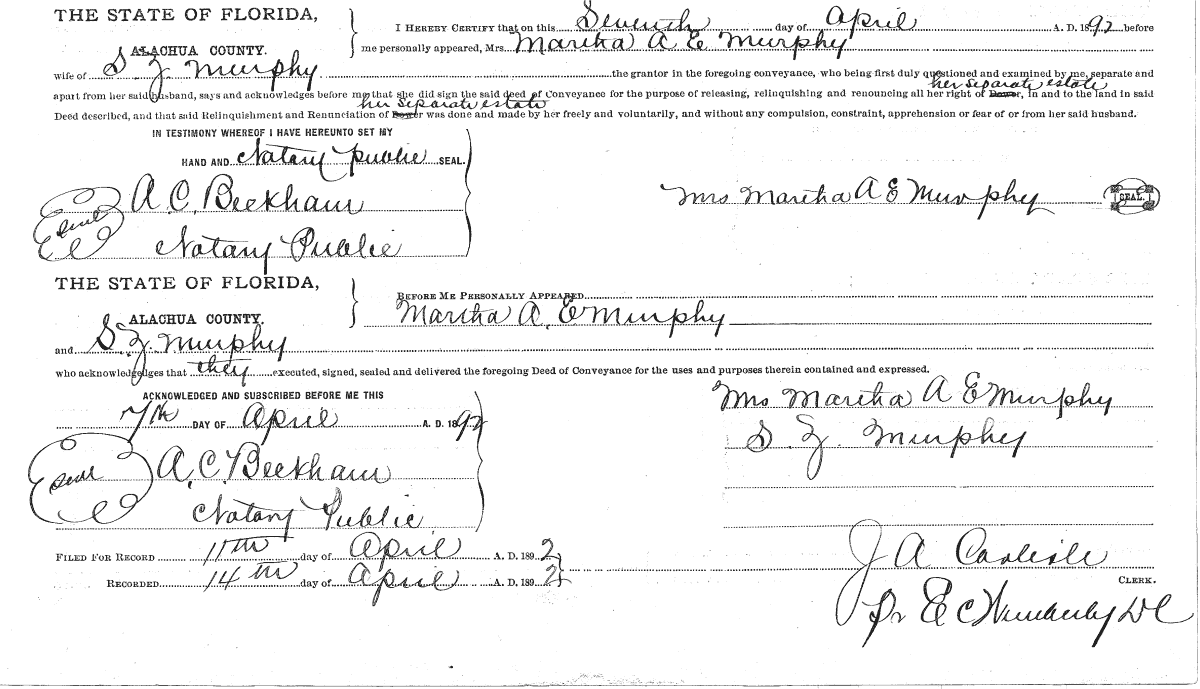 THE STATE OF FLORIDA,
ALACHUA COUNTY.
I HEREBY CERTIFY that on this Seventh day of April A. D. 1892 before
me personally appeared, Mrs. Martha A E Murphy
wife of S Z Murphy the grantor in the foregoing conveyance, who being first duly questioned and examined by me, separate and
her separate estate
apart from her said husband, says and acknowledges before me that she did sign the said deed of Conveyance for the purpose of releasing, relinquishing and renouncing all her right of Dower, in and to the land in said
her separate estate
Deed described, and that said Relinquishment and Renunciation of Dower was done and made by her freely and voluntarily, and without any compulsion, constraint, apprehension or fear of or from her said husband.
IN TESTIMONY WHEREOF I HAVE HEREUNTO SET MY
HAND AND Notary public SEAL.
Seal A. C. Beekham
Mrs Martha A E Murphy SEAL.
Notary Public
THE STATE OF FLORIDA,
ALACHUA COUNTY.
BEFORE ME PERSONALLY APPEARED
Martha A. E Murphy
and S Z Murphy
who acknowledges that they executed, signed, sealed and delivered the foregoing Deed of Conveyance for the uses and purposes therein contained and expressed.
ACKNOWLEDGED AND SUBSCRIBED BEFORE ME THIS
7th DAY OF April A. D. 1892
Mrs Martha A E Murphy
S Z. Murphy
Seal A. C. Beekham
Notary Public
FILED FOR RECORD 11th day of April A. D. 1892
RECORDED 14th day of April A. D. 1892
J A Carlisle
CLERK.
Pr E C Wimberly DC